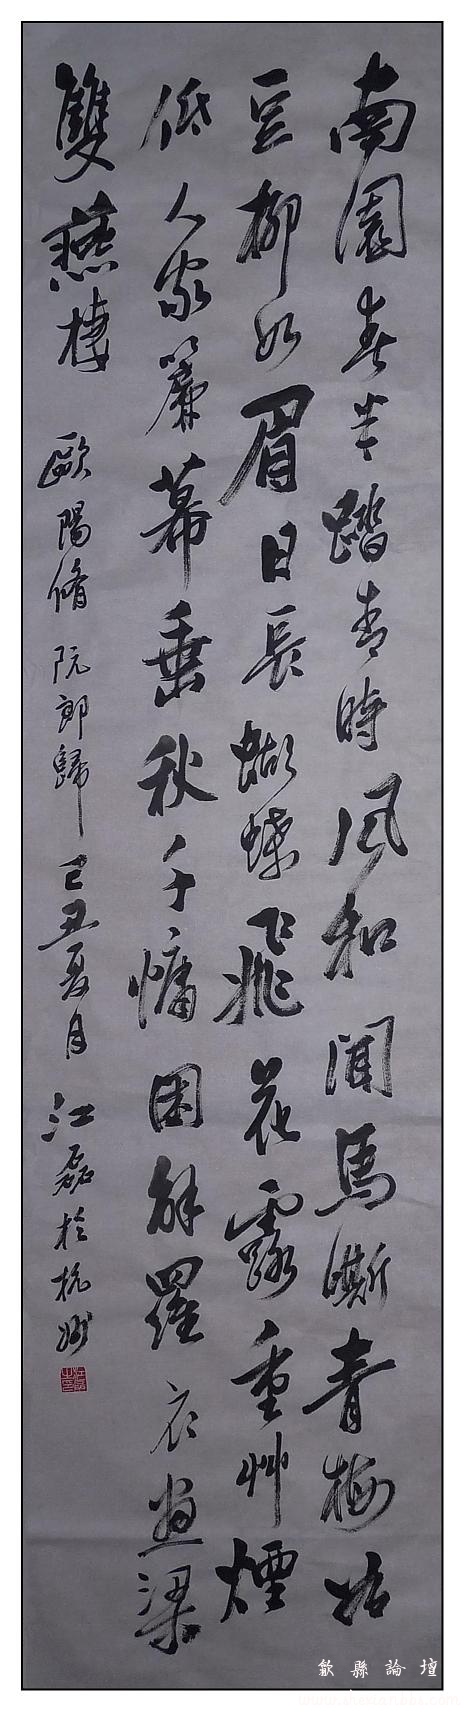 南園春半踏青時風和聞馬嘶青梅如
豆柳如眉日長蝴蝶飛花露重艸煙
低人家簾幕垂秋千慵困解羅衣畫梁
雙燕棲 歐陽脩 阮郎歸 己丑夏月 江磊於杭州
歙縣論壇